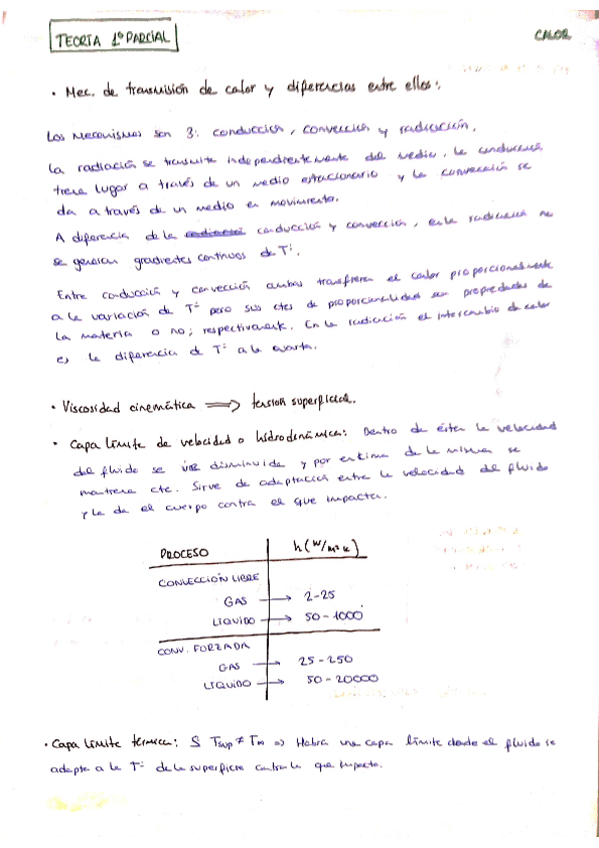 TEORIA 1º PARCIAL
CALOR
· Mec. de transmisión de calor y diferencias entre ellos:
Los mecanismos son 3: conducción, convección y radiación.
La radiación se transmite independientemente del medio, la conducción
tiene lugar a través de un medio estacionario y la convección se
da a través de un medio en movimiento.
A diferencia de la conducción y convección, en la radiación no
se generan gradientes continuos de Tª.
Entre conducción y convección ambas transfieren el calor proporcionalmente
a la variación de Tª pero sus ctes de proporcionalidad son propiedades de
la materia o no; respectivamente. En la radiación el intercambio de calor
es la diferencia de Tª a la cuarta.
· Viscosidad cinemática ⟹ tension superficial.
· Capa límite de velocidad o hidrodinámica: Dentro de ésta la velocidad
del fluido se ve disminuida y por encima de la misma se
mantiene cte. Sirve de adaptación entre la velocidad del fluido
y la de el cuerpo contra el que impacta.
PROCESO h (W/m²K)
CONVECCIÓN LIBRE
GAS → 2-25
LIQUIDO → 50-1000
CONV. FORZADA
GAS → 25-250
LIQUIDO → 50-20000
· Capa límite térmica: S Tsup ≠ T∞ => Habrá una capa límite donde el fluido se
adapte a la Tª de la superficie contra la que impacta.